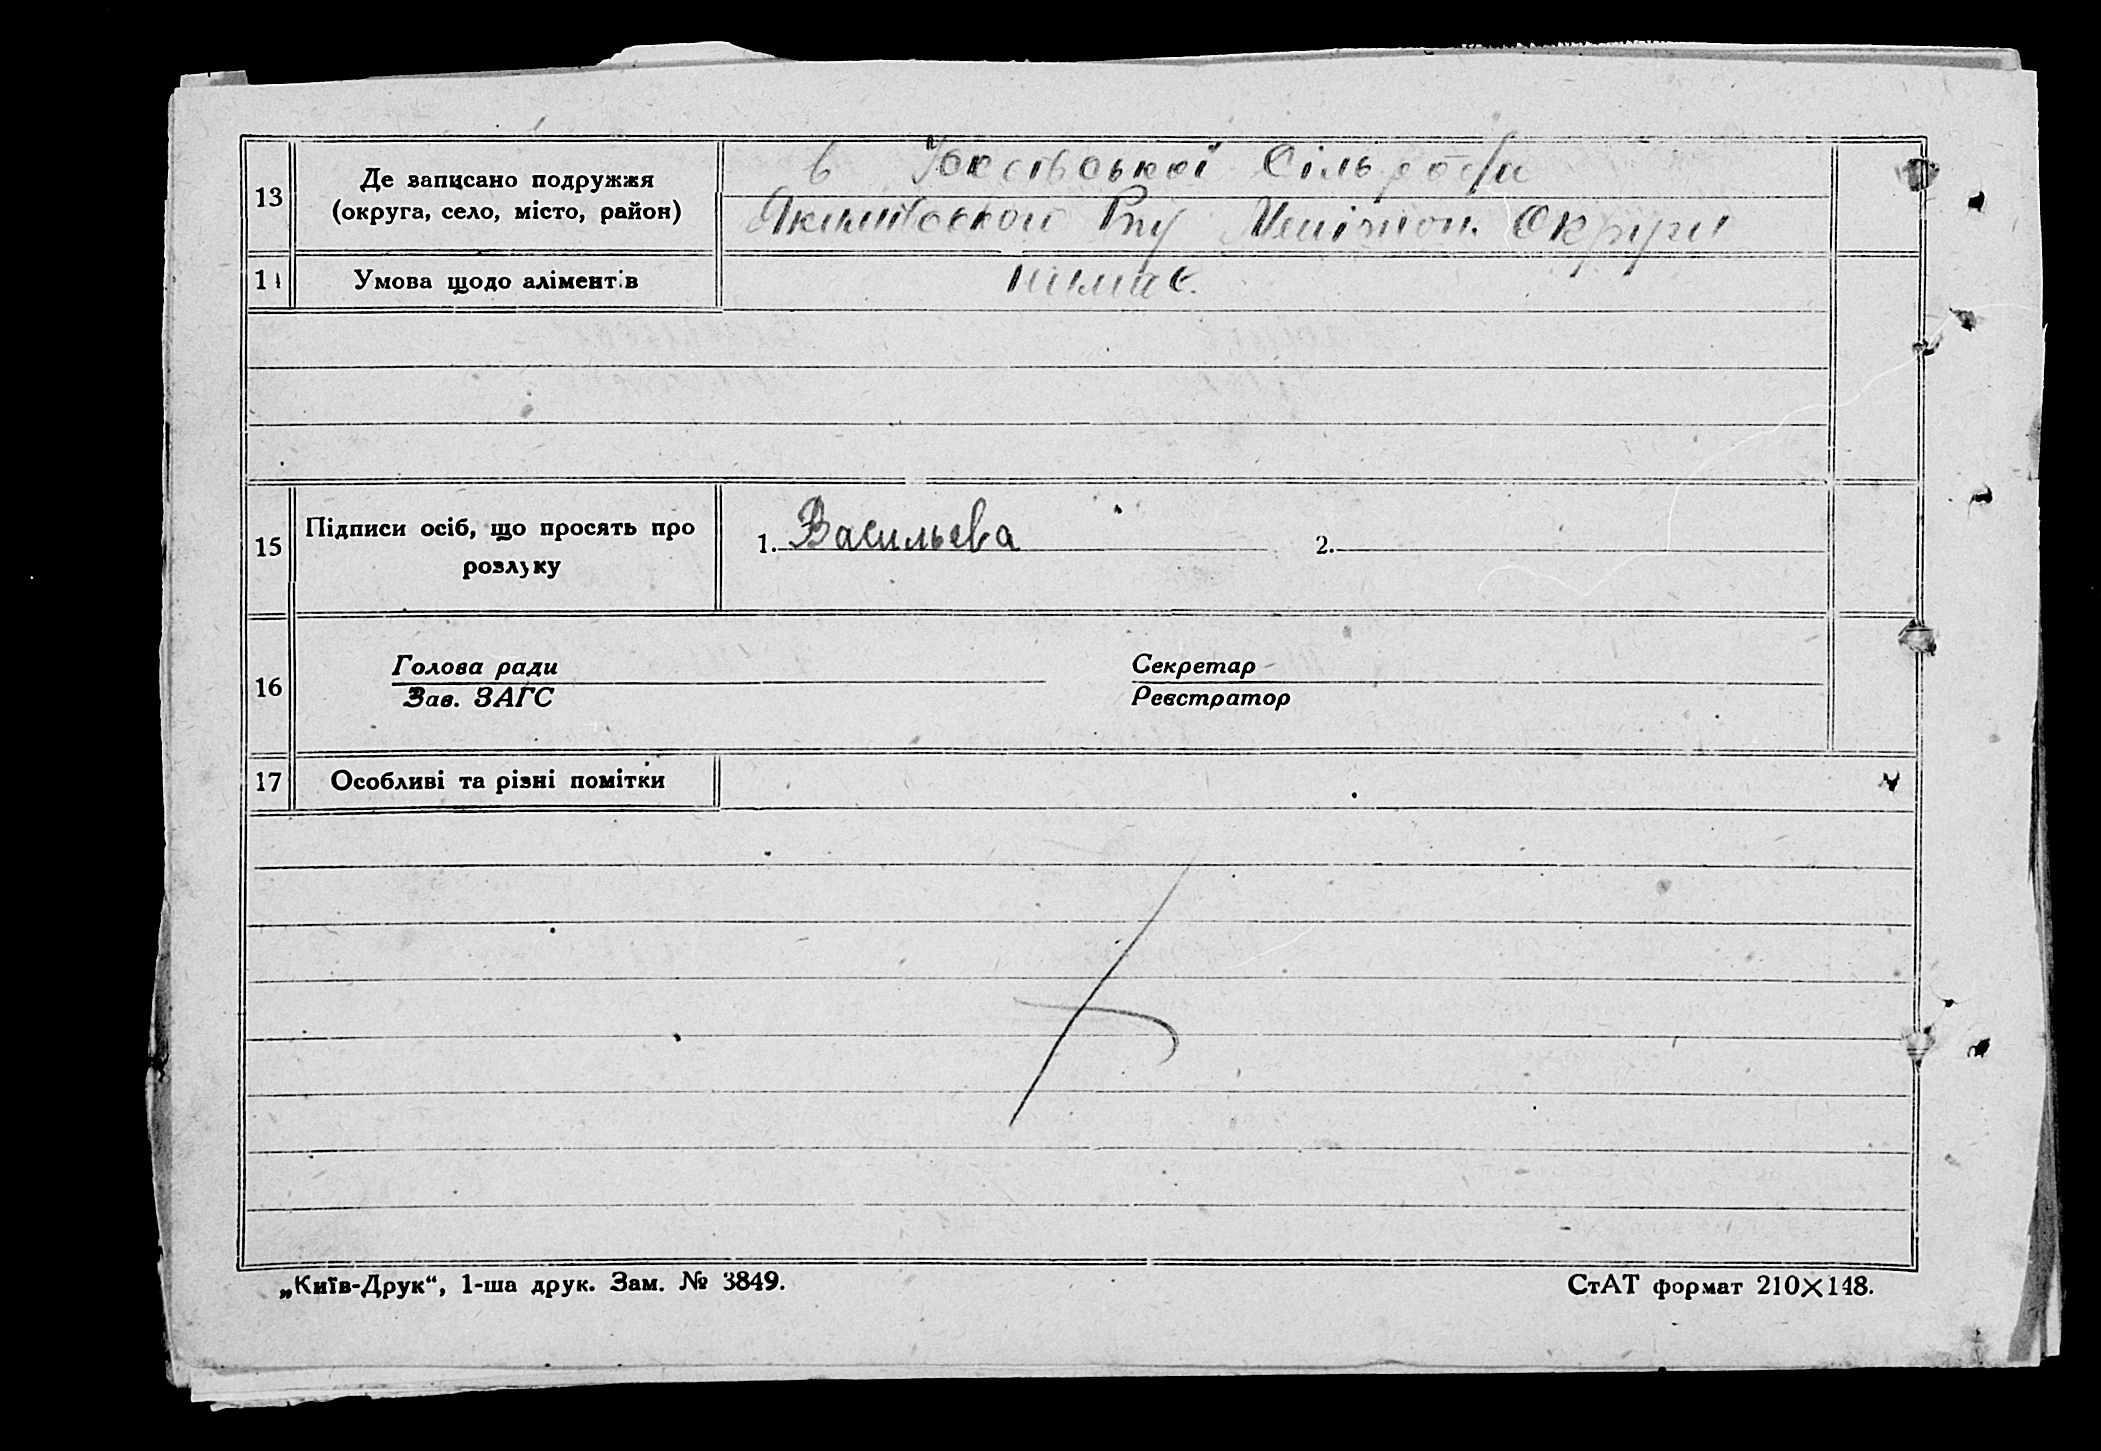 13
Де записано подружжя
(округа, село, місто, район)
в Сільради
Якимівського Р-ну Мелітоп. Округи
14
Умова щодо аліментів
німає.
15
Підписи осіб, що просять про
розлуку
1. Васильева
2.
16
Голова ради
Зав. ЗАГС
Секретар
Реєстратор
17
Особливі та різні помітки
„Київ-Друк“, 1-ша друк. Зам. № 3849.
СтАТ формат 210×148.